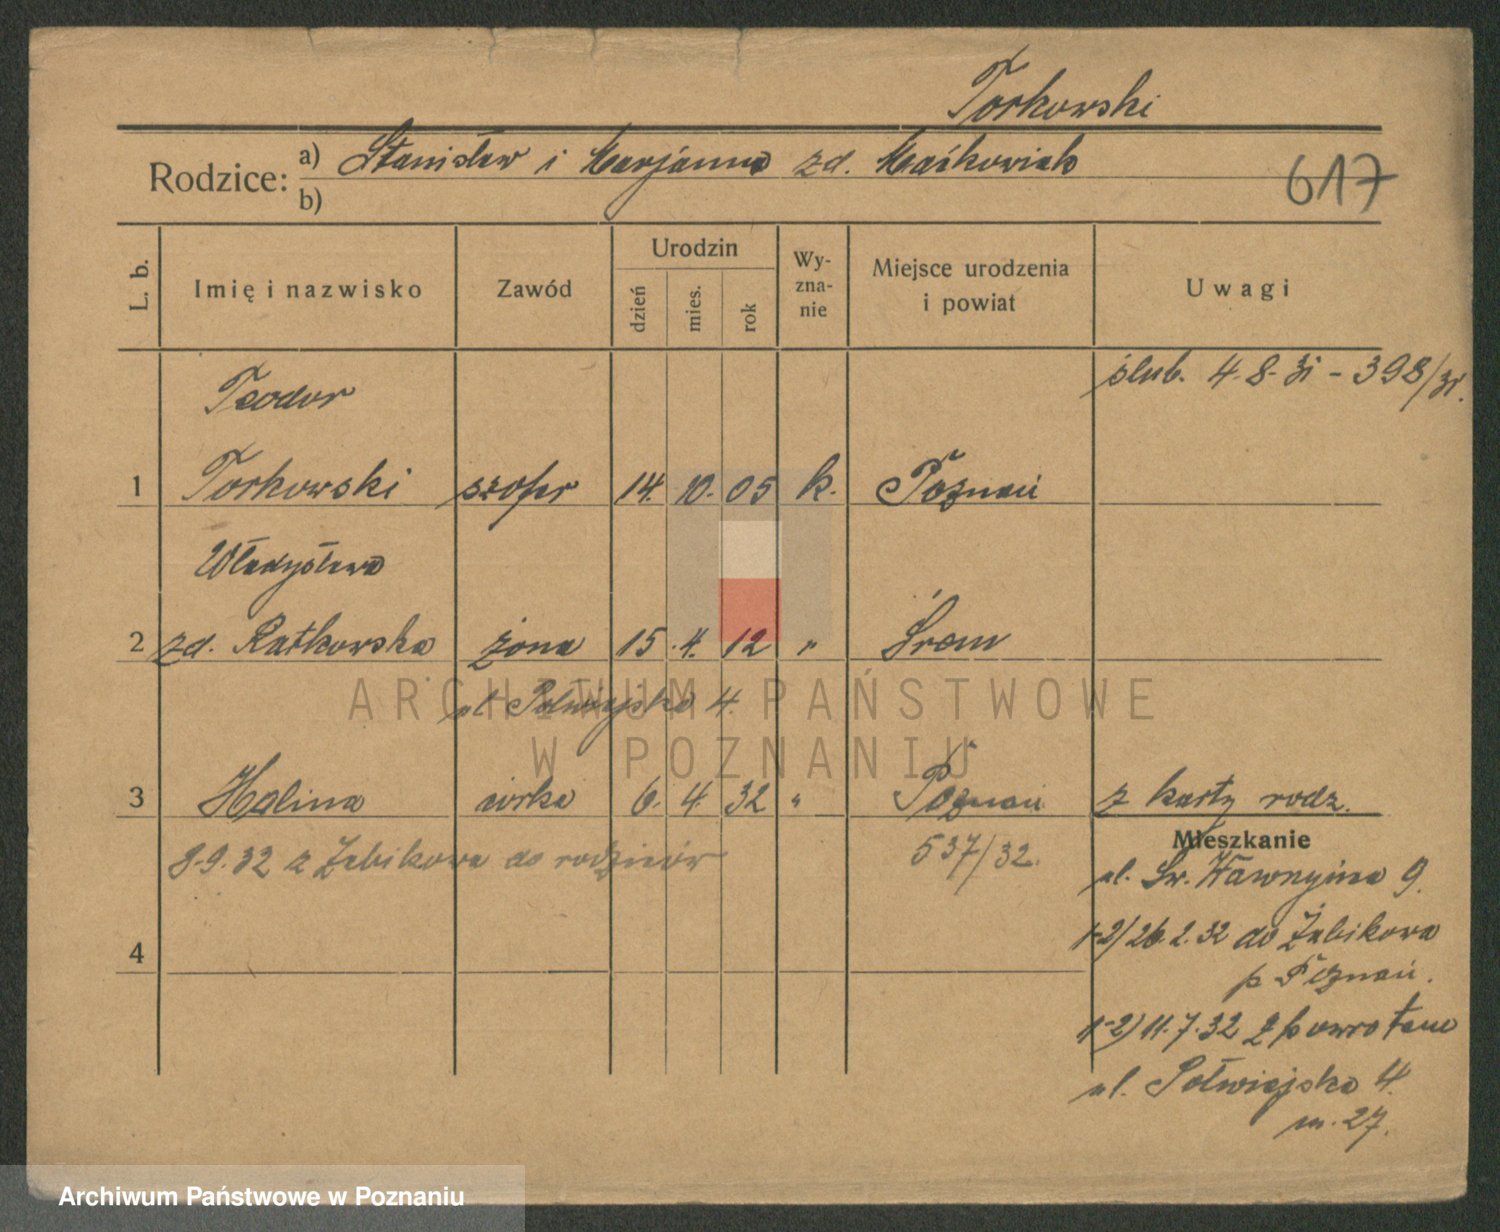 Torkowski
Rodzice: a) Stanisław i Marjanna zd. Maćkowiak
b)
617
L. b. Imię i nazwisko Zawód Urodzin dzień mies. rok Wy-zna-nie Miejsce urodzenia i powiat Uwagi
Teodor ślub. 4.8.31 - 398/31.
1 Torkowski szofer 14. 10. 05 k. Poznań
Władysława
2 zd. Ratkowska żona 15. 4. 12 " Śrem
ul. Półwiejska 4.
3 Halina córka 6. 4. 32 " Poznań z karty rodz.
8.9.32 z Żabikowa do rodziców 537/32.
Mieszkanie
ul. Św. Wawrzyńca 9.
1-2) 26.2.32 do Żabikowa
p. Poznań.
4
1-2) 11.7.32 z powrotem
ul. Półwiejska 4.
m. 27.
ARCHIWUM PAŃSTWOWE
W POZNANIU
Archiwum Państwowe w Poznaniu